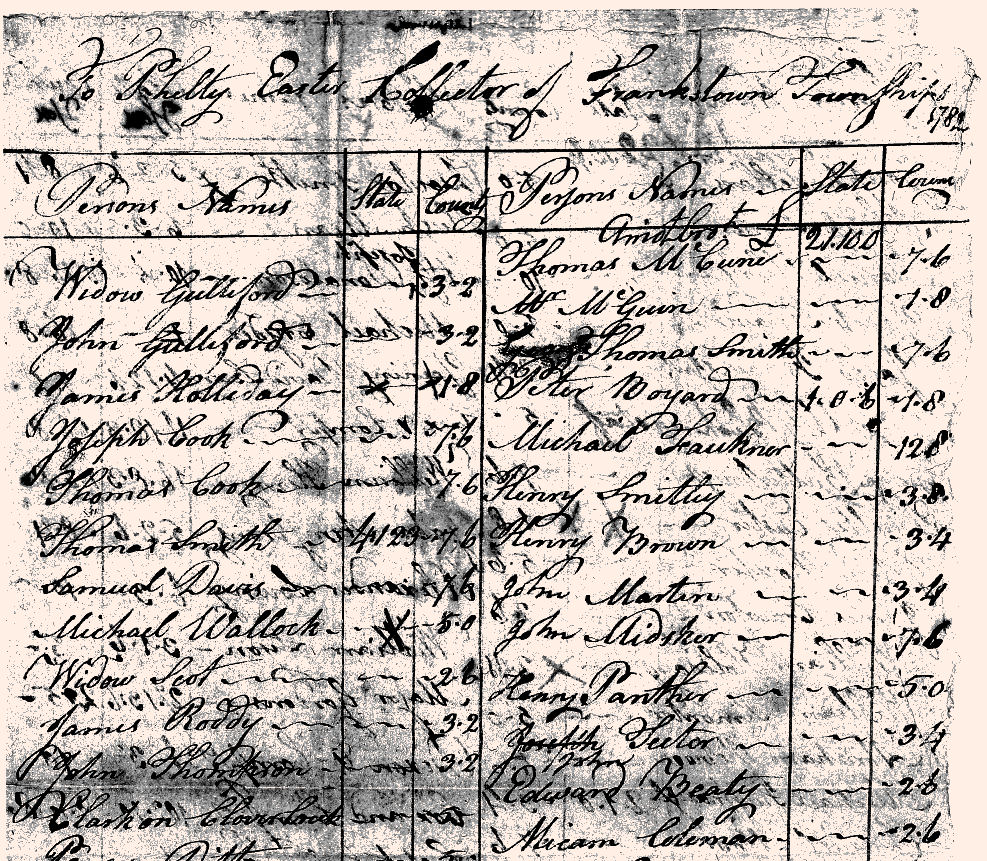 To Phelty Easter Collector of Frankstown Township
1782
Persons Names State County
Widow Gulliford 3-2
John Gulliford 3-2
James Holliday 1.8
Joseph Cook 7.6
Thomas Cook 7.6
Thomas Smith 7.6
Samuel Davis 7.6
Michael Wallock 5.0
Widow Scot 2.6
James Roddy 3.2
John Thompson 3.2
Clarkon
Persons Names State
Amt brot £ 21.10.0
Thomas McCune 7.6
Mr McGuin 1.8
Thomas Smith 7.6
Peter Boyard 1.0.6 1.8
Michael Faukner 12.8
Henry Smithy 3.8
Henry Brown 3.4
John Martin 3.4
John Midsker 7.6
Henry Panther 5.0
Teetor 3.4
John
Edward Beaty 2.8
Miriam Coleman 2.6